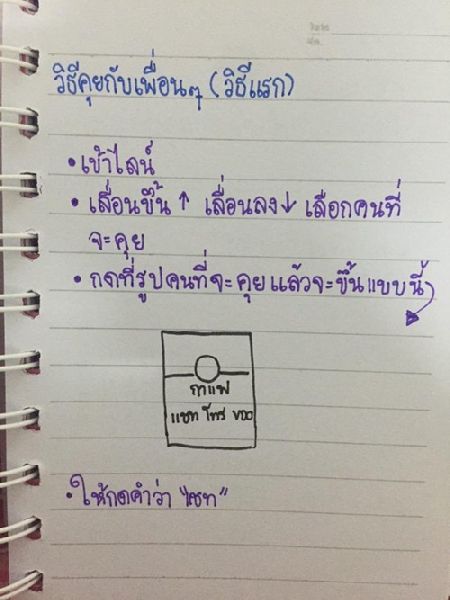 วิธีคุยกับเพื่อนๆ (วิธีแรก)
• เข้าไลน์
• เลื่อนขึ้น ↑ เลื่อนลง ↓ เลือกคนที่
จะคุย
• กดที่รูปคนที่จะคุยแล้วจะขึ้นแบบนี้
กาแฟ
แชท โทร VDO
• ให้กดคำว่า "แชท"